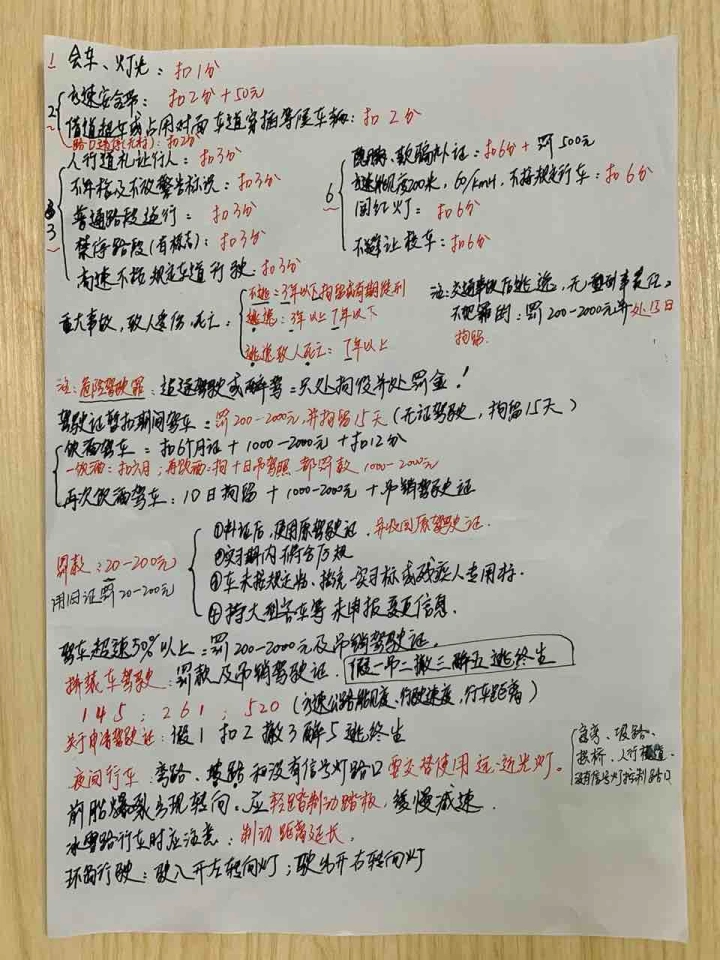 1 会车、灯光：扣1分
2 高速安全带：扣2分+50元
借道超车或占用对面车道穿插等候车辆：扣2分
人行道礼让行人：扣3分
不年检及不放警告标识：扣3分
3 普通路段逆行：扣3分
禁停路段(有标志)：扣3分
高速不按规定车道行驶：扣3分
欺骗补证：扣6分+罚500元
6 高速能见度200米，60/Km/H，不按规定行车：扣6分
闯红灯：扣6分
不避让校车：扣6分
重大事故，致人受伤、死亡：
不逃：3年以下拘留或有期徒刑
逃逸：3年以上7年以下
逃逸致人死亡：7年以上
注：交通事故后逃逸，
不犯罪的：罚200-2000元并处15日
拘留.
注：危险驾驶罪：追逐驾驶或醉驾：只处拘役并处罚金！
驾驶证暂扣期间驾车：罚200-2000元,并拘留15天(无证驾驶，拘留15天)
饮酒驾车：扣6个月证+1000-2000元+扣12分
一饮酒：扣六月；再饮酒：拘十日吊驾照 都罚款1000-2000元
再次饮酒驾车：10日拘留+1000-2000元+吊销驾驶证
罚款：20-200元
用旧证罚20-200元
①补证后，使用原驾驶证，并收回原驾驶证.
②实习期内不符合厂规
③车未按规定
实习标或残疾人专用标.
④持大型客车等未申报变更信息.
驾车超速50%以上：罚200-2000元及吊销驾驶证.
拼装车驾驶：罚款及吊销驾驶证. 假一吊二撤三醉五逃终生
145；261；520(高速公路能见度、行驶速度，行车距离)
关于申请驾驶证：假1 扣2 撤3 醉5 逃终生
夜间行车：弯路、坡路和没有信号灯路口要交替使用远近光灯。
急弯、坡路、
拱桥、人行横道.
没有信号灯控制路口
前胎爆裂出现转向。应轻踏制动踏板，缓慢减速.
冰雪路行车时应注意：制动距离延长.
环岛行驶：驶入开左转向灯；驶出开右转向灯